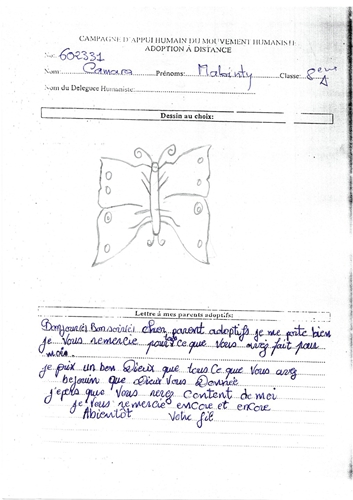 CAMPAGNE D'APPUI HUMAIN DU MOUVEMENT HUMANISTE
ADOPTION À DISTANCE
No: 602331
Nom: Camara Prénoms: Classe: 8ème A
Nom du Delegue Humaniste:
Dessin au choix:
Lettre à mes parents adoptifs:
Bonjour(e) Bonsoir(e) cher parent adoptifs je me porte bien
je vous remercie pour ce que vous avez fait pour
moi.
je prix un bon Dieux que tous ce que vous avez
bejouin que Dieux vous Donnee
j'espes que vous serez content de moi
je vous remercie encore et encore
Abientôt votre fil